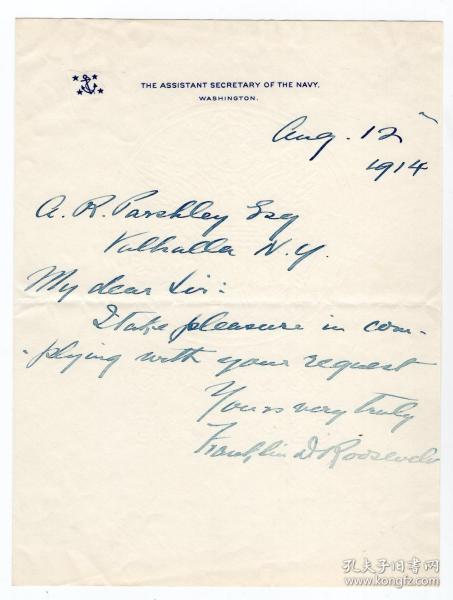 THE ASSISTANT SECRETARY OF THE NAVY.
WASHINGTON.
Aug. 12"
1914
A. R. Parshley Esq
Valhalla N.Y.
My dear Sir:
I take pleasure in com-
-plying with your request
Yours very truly
Franklin D Roosevelt
孔夫子旧书网
www.kongfz.com